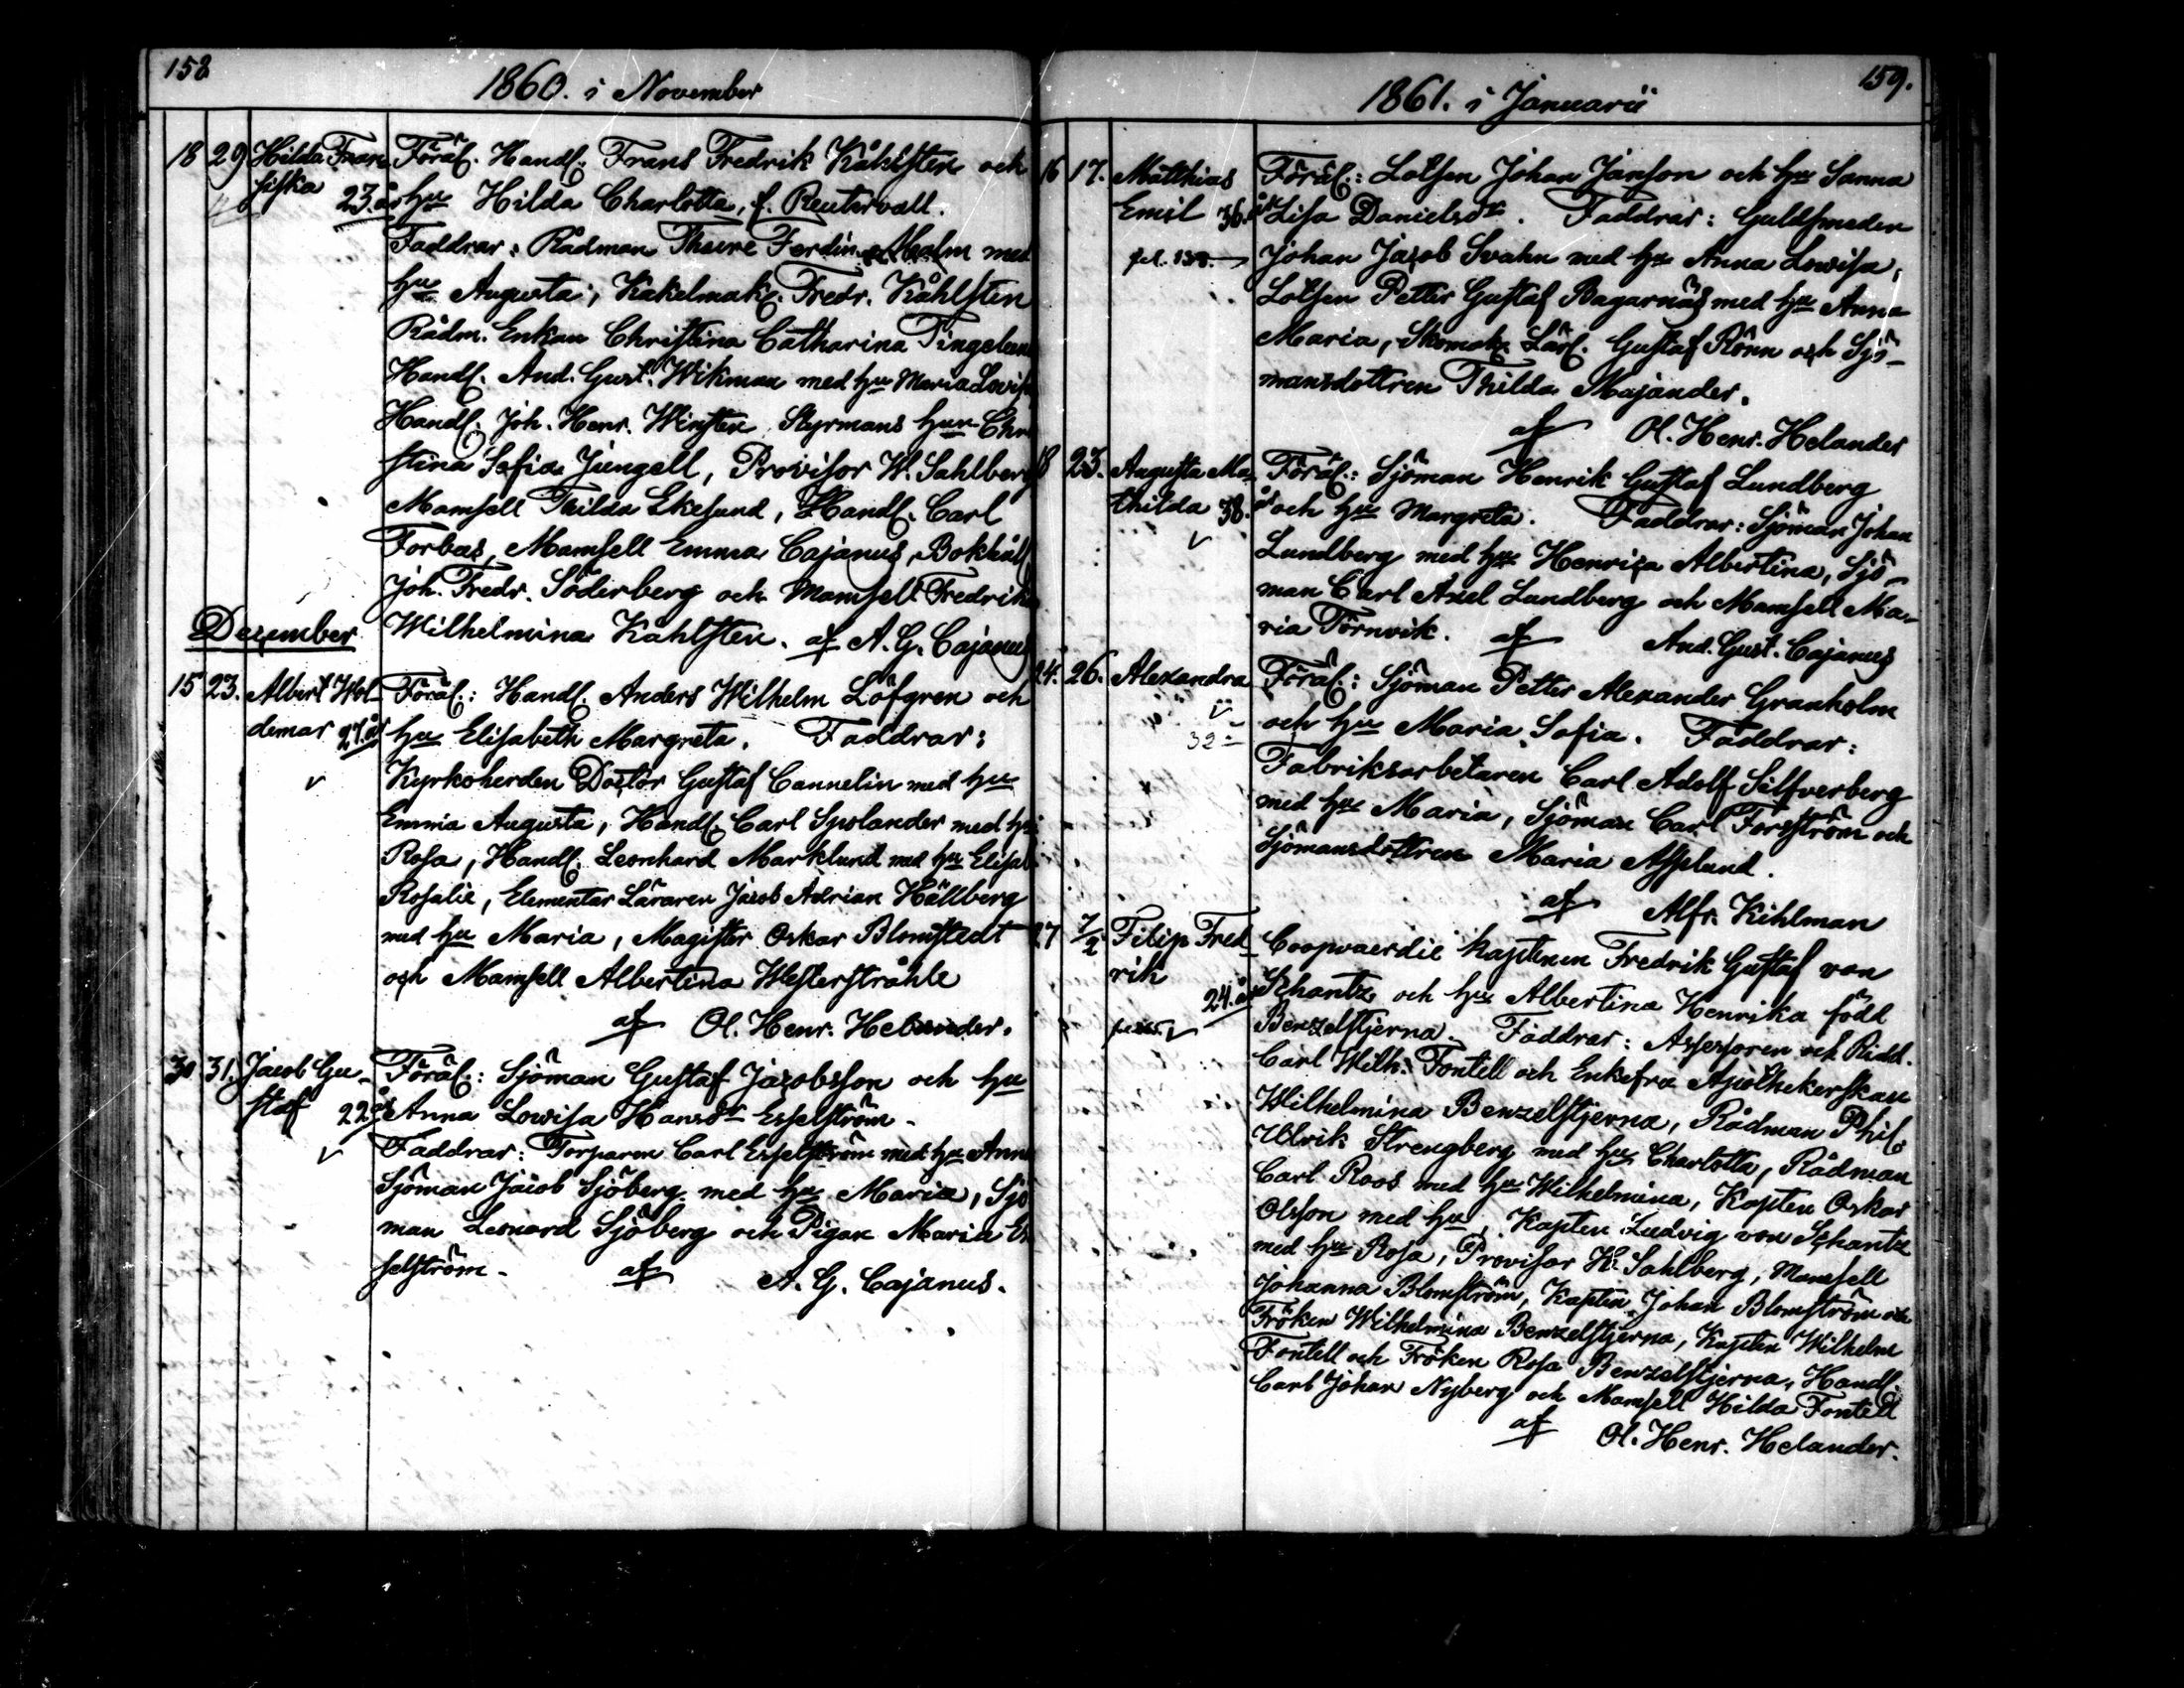 158
1860. i November
18 29 Hilda Fran- Föräl. Handl. Frans Fredrik Kåhlsten och
siska 23. år hu Hilda Charlotta, f. Reutervall.
Faddrar: Rådman Thure Ferdin. Malm med
hu Augusta, Kakelmak. Fredr. Kåhlsten
Rådm. Enkan Christina Catharina
Handl. And. Gust. Wikman med hu Maria Lovisa
Handl. Joh. Henr. Winsten Styrmans hu Chri
stina Sofia Jungell, Provisor W. Sahlberg
Mamsell Thilda Ekelund, Handl. Carl
Forbus, Mamsell Emma Cajanus, Bokhåll.
Joh. Fredr. Söderberg och Mamsell Fredrika
Wilhelmina Kåhlsten. af A. G. Cajanus
December
15 23. Albert Wol- Föräl.: Handl. Anders Wilhelm Löfgren och
demar 27. år hu Elisabeth Margreta. Faddrar:
Kyrkoherden Doctor Gustaf Cannelin med hu
Emma Augusta, Handl. Carl Sjolander med hu
Rosa, Handl. Leonhard Marklund med hu Elisab
Rosalie, Elementar Läraren Jacob Adrian Hällberg
med hu Maria, Magister Oskar Blomstedt
och Mamsell Albertina Westerstråhle
af Ol. Henr. Helander.
30 31. Jacob Gu- Föräl.: Sjöman Gustaf Jacobsson och hu
staf 22 år Anna Lowisa Hansdr Esselström.
Faddrar: Torparen Carl Esselström med hu Anna
Sjöman Jacob Sjöberg med hu Maria, Sjö
man Leonard Sjöberg och Pigan Maria Es
selström. af A. G. Cajanus.
159.
1861. i Januarii
16 17. Matthias Föräl.: Lotsen Johan Janson och hu Sanna
Emil 36. år Lisa Danielsdr. Faddrar: Guldsmeden
Johan Jacob Svahn med hu Anna Lowisa,
Lotsen Petter Gustaf Bagarnäs med hu Anna
Maria, Skomak. Lärl. Gustaf Rönn och Sjö-
mansdottren Thilda Majander.
af Ol. Henr. Helander
18 23. Augusta Ma- Föräl.: Sjöman Henrik Gustaf Lundberg
thilda 38. år och hu Margreta. Faddrar: Sjöman Johan
Lundberg med hu Henrica Albertina, Sjö-
man Carl Axel Lundberg och Mamsell Ma-
ria Törnvik. af And. Gust. Cajanus
24. 26. Alexandra Föräl.: Sjöman Petter Alexander Granholm
32 och hu Maria Sofia. Faddrar:
Fabriksarbetaren Carl Adolf Silfverberg
med hu Maria, Sjöman Carl Forsström och
Sjömansdottren Maria Asplund.
af Alfr. Kihlman
27 7/2 Filip Fred- Coopvaerdie Kaptenen Fredrik Gustaf von
rik 24. år Schantz och hu Albertina Henrika född
Benzelstjerna. Faddrar: Assessoren och Ridd.
Carl Wilh. Fontell och Enkefru Apothekerskan
Wilhelmina Benzelstjerna, Rådman Phil.
Ulrik Strengberg med hu Charlotta, Rådman
Carl Roos med hu Wilhelmina, Kapten Oskar
Olsson med hu, Kapten Ludvig von Schantz
med hu Rosa, Provisor W. Sahlberg, Mamsell
Johanna Blomström, Kapten Johan Blomström och
Fröken Wilhelmina Benzelstjerna, Kapten Wilhelm
Fontell och Fröken Rosa Benzelstjerna, Handl.
Carl Johan Nyberg och Mamsell Hilda Fontell
af Ol. Henr. Helander.